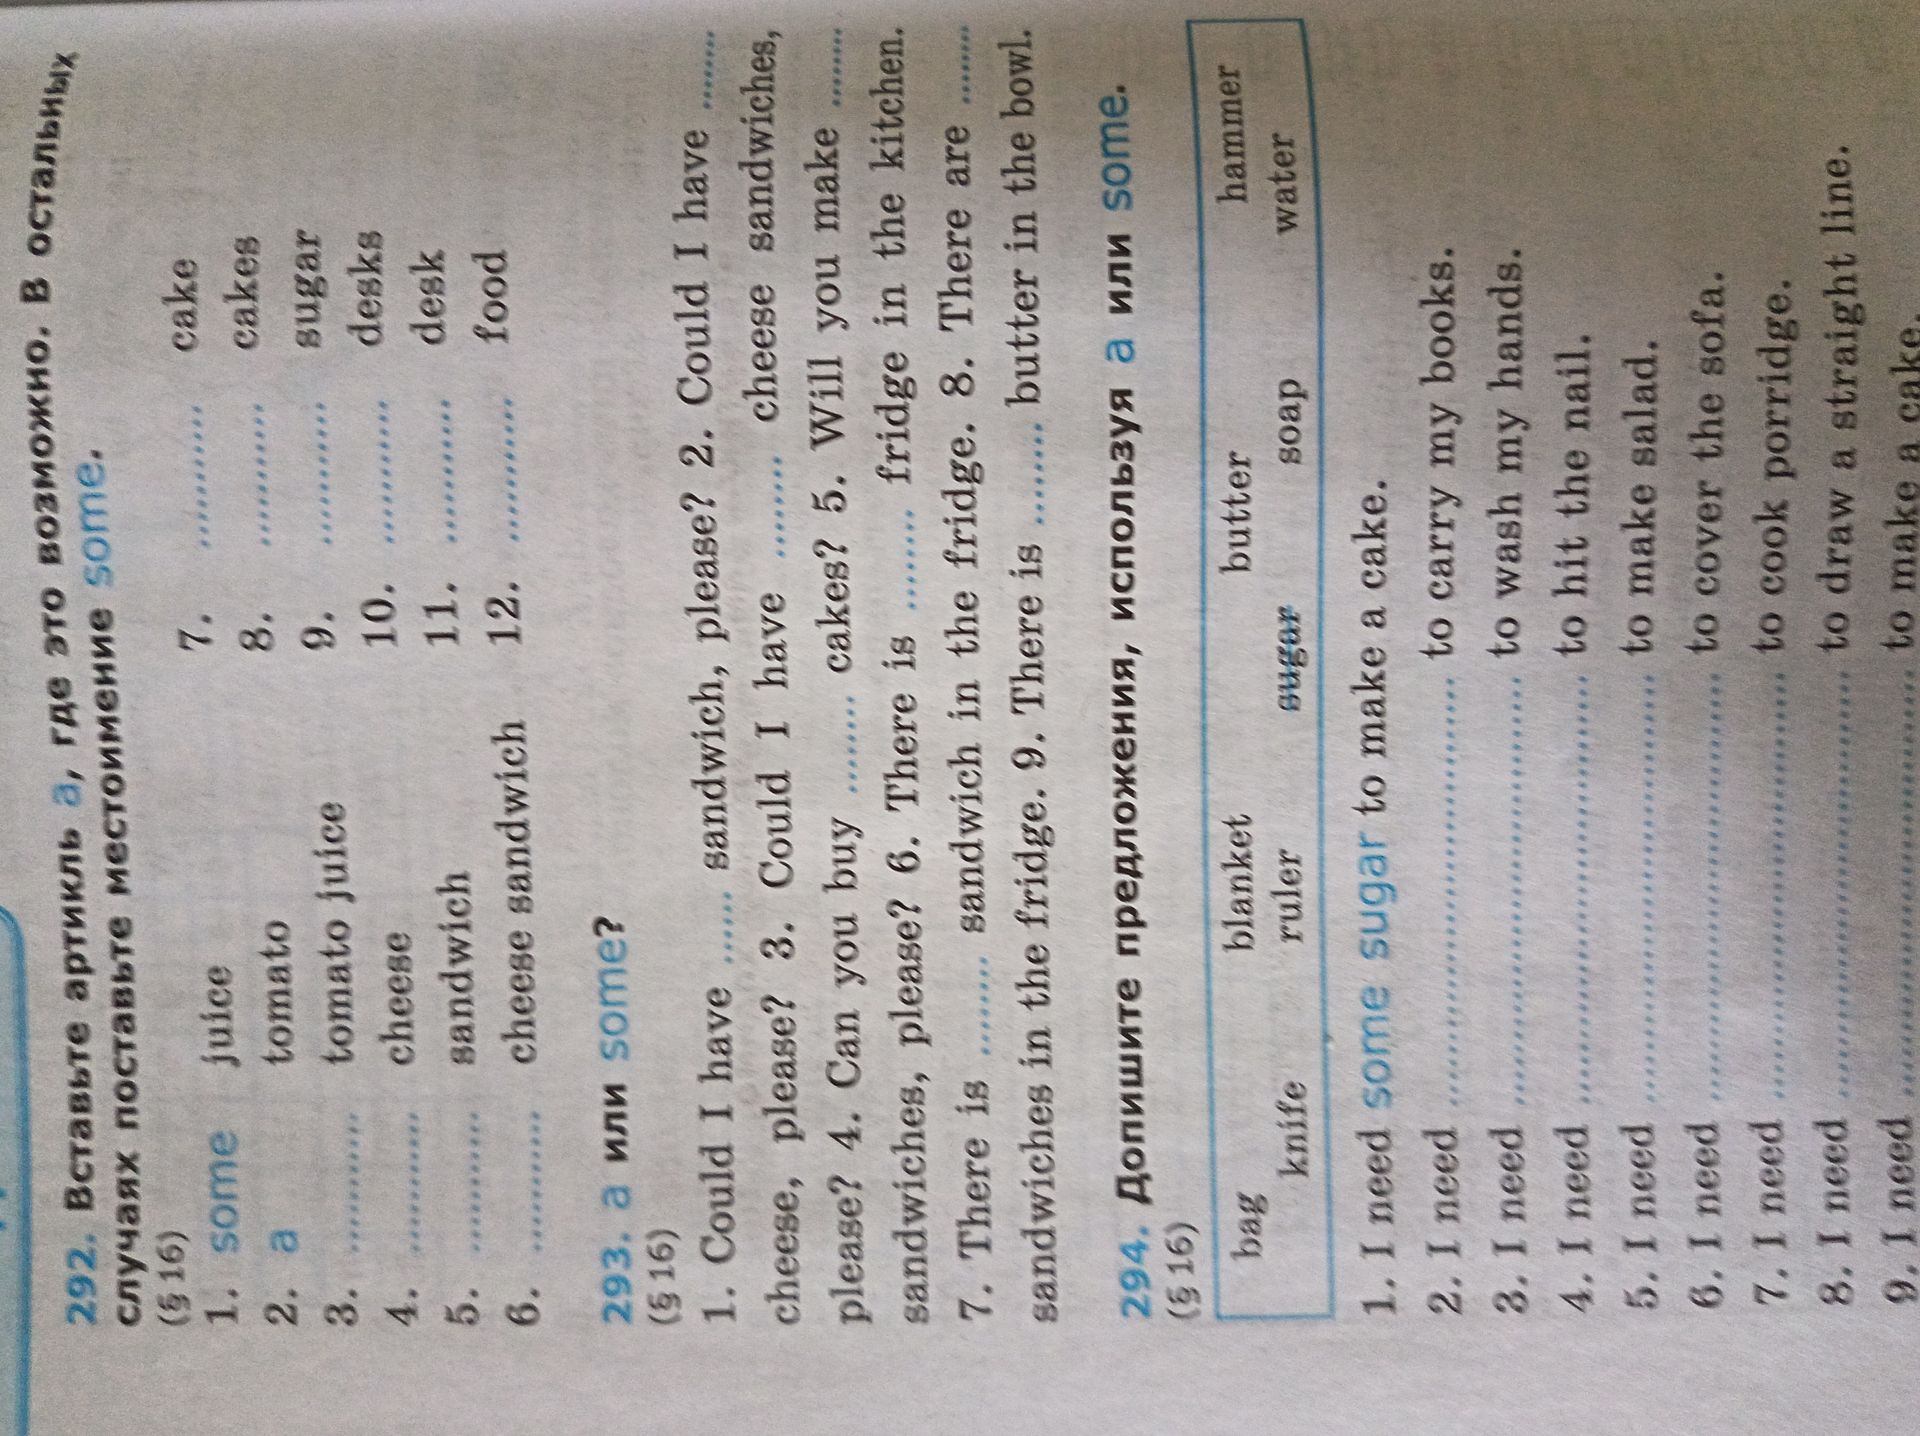 292. Вставьте артикль a, где это возможно. В остальных
случаях поставьте местоимение some.
(§ 16)
1. some juice 7. ........... cake
2. a tomato 8. ........... cakes
3. ........... tomato juice 9. ........... sugar
4. ........... cheese 10. ........... desks
5. ........... sandwich 11. ........... desk
6. ........... cheese sandwich 12. ........... food
293. a или some?
(§ 16)
1. Could I have ...... sandwich, please? 2. Could I have ........
cheese, please? 3. Could I have ........ cheese sandwiches,
please? 4. Can you buy ........ cakes? 5. Will you make ........
sandwiches, please? 6. There is ........ fridge in the kitchen.
7. There is ........ sandwich in the fridge. 8. There are ........
sandwiches in the fridge. 9. There is ........ butter in the bowl.
294. Допишите предложения, используя a или some.
(§ 16)
bag blanket butter hammer
knife ruler sugar soap water
1. I need some sugar to make a cake.
2. I need ........................................ to carry my books.
3. I need ........................................ to wash my hands.
4. I need ........................................ to hit the nail.
5. I need ........................................ to make salad.
6. I need ........................................ to cover the sofa.
7. I need ........................................ to cook porridge.
8. I need ........................................ to draw a straight line.
9. I need ........................................ to make a cake.